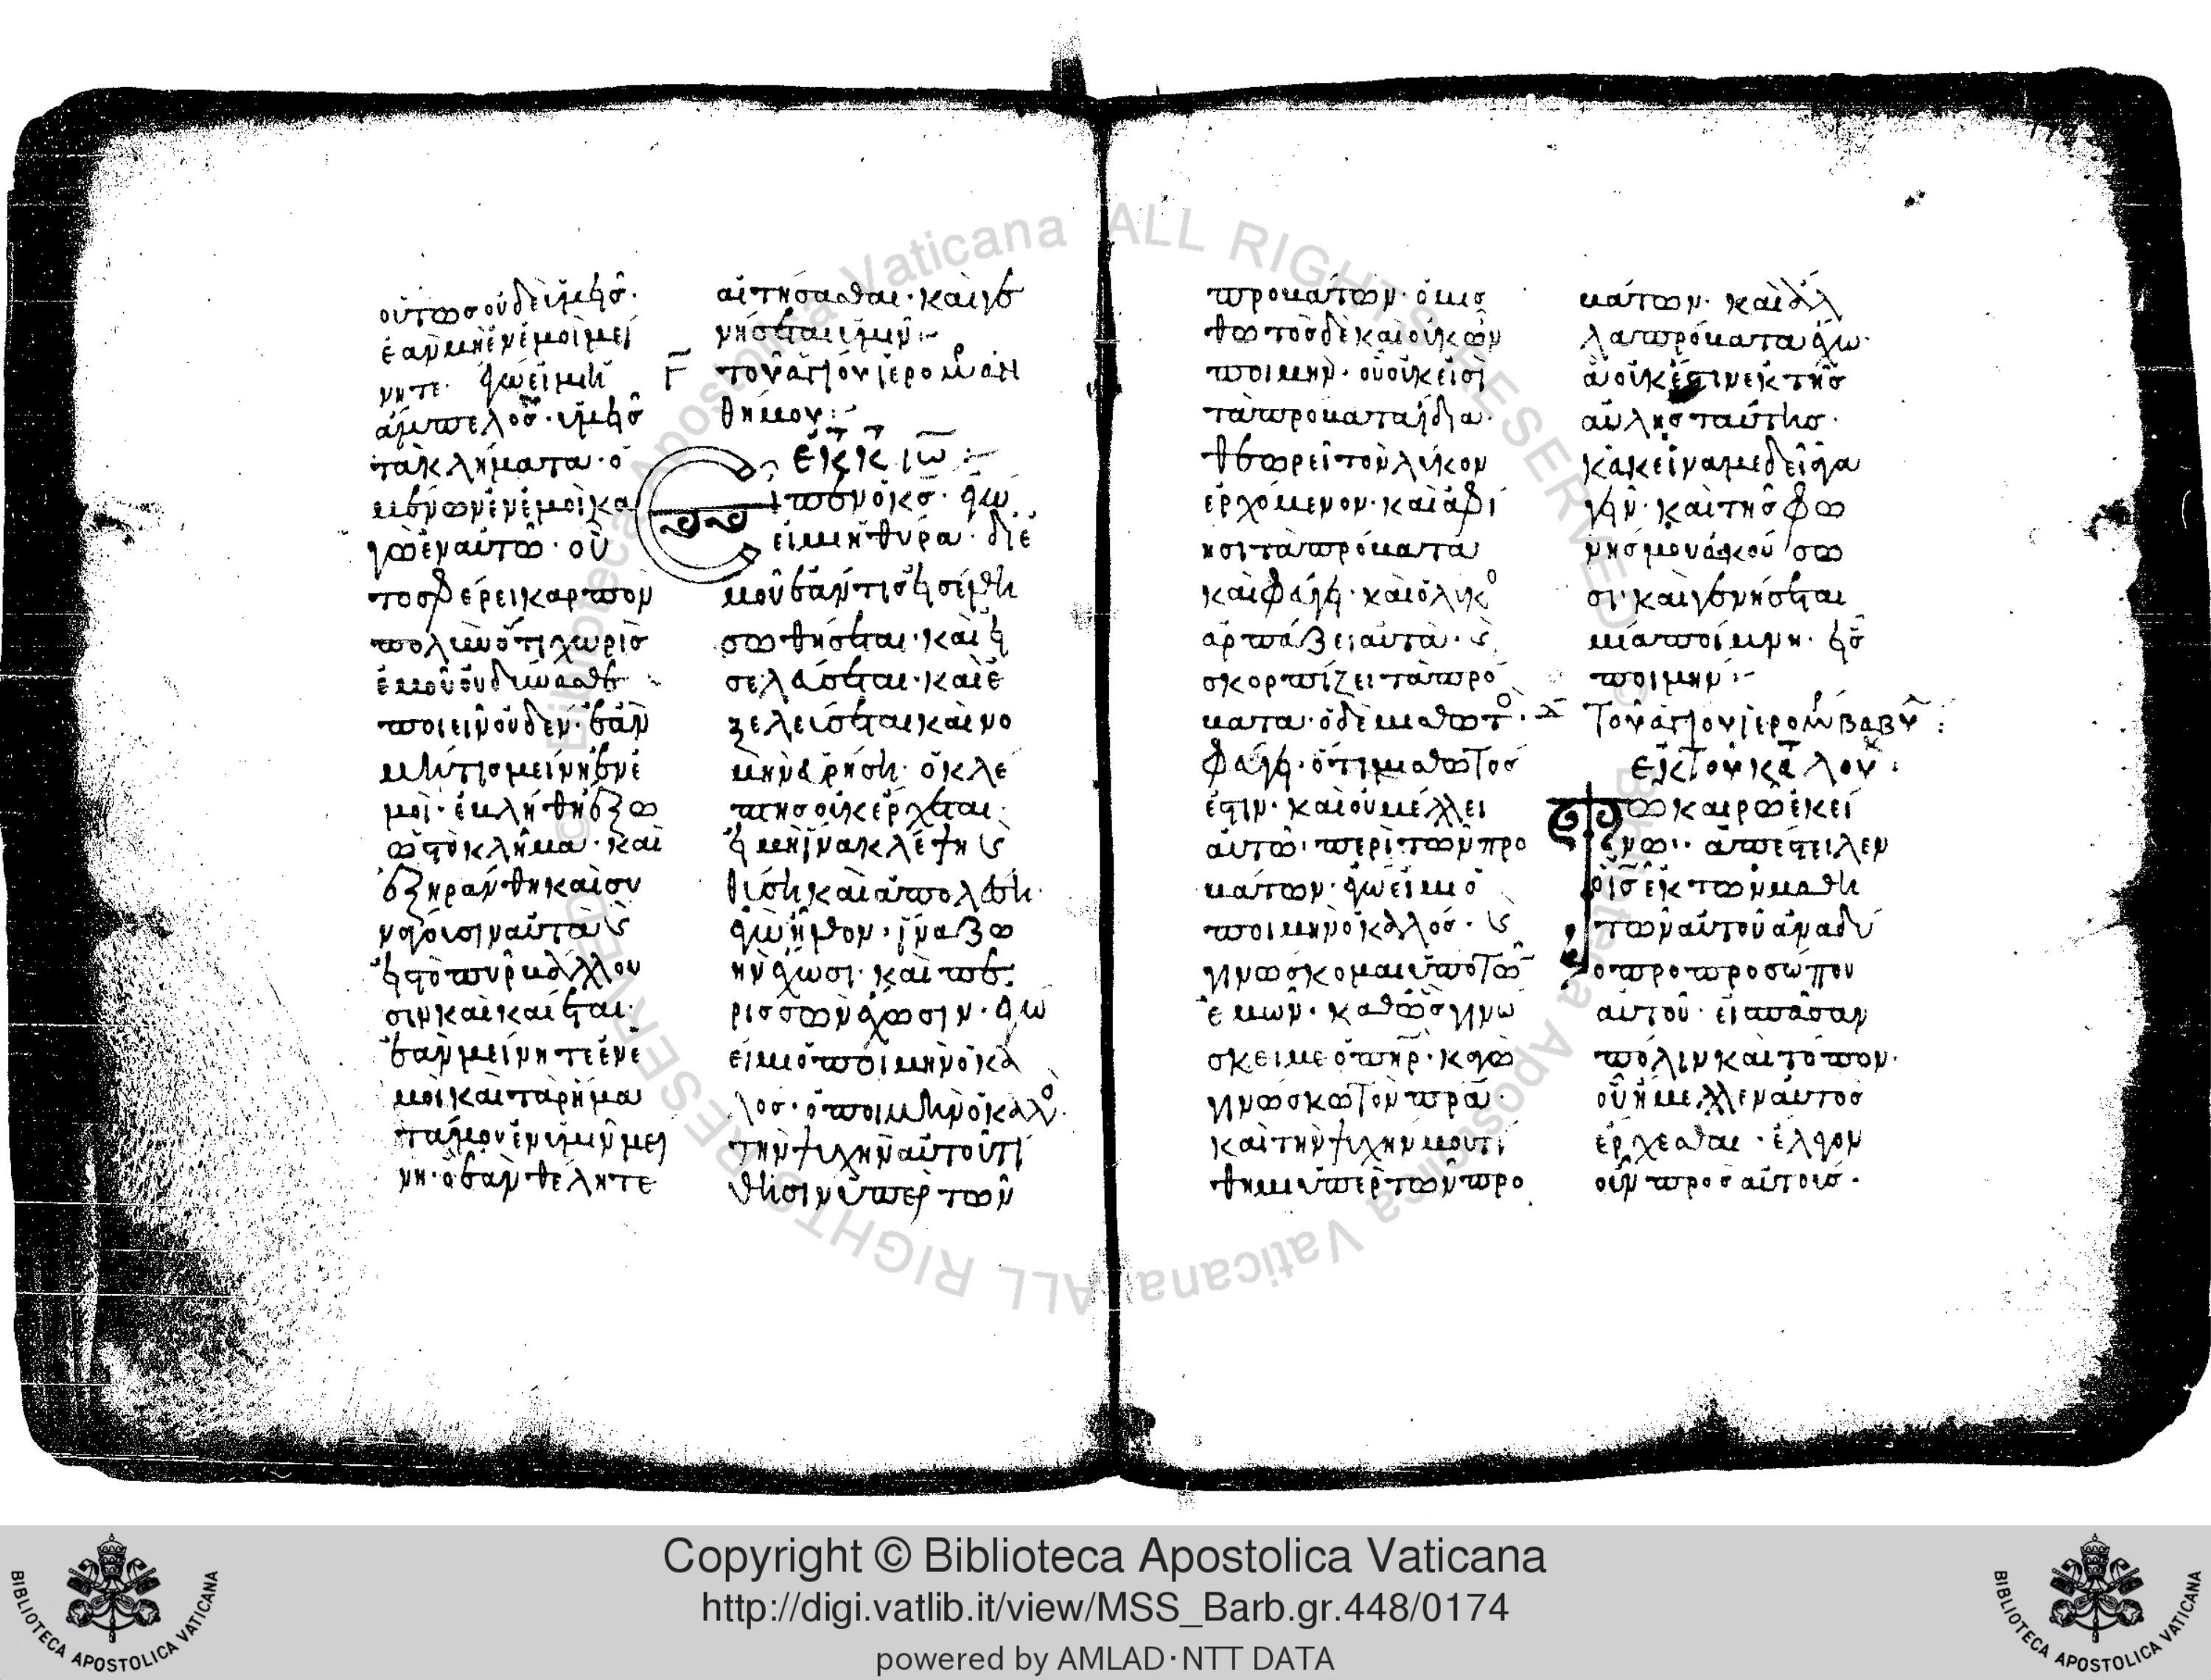 οὕτωσ οὐδὲ ὑμεῖσ·
ἐὰν μὴ ἐν ἐμοὶ μεί
νητε· ἐγώ εἰμι ἡ
ἄμπελοσ· ὑμεῖσ
τὰ κλήματα· ὁ
μένων ἐν ἐμοὶ κα
γὼ ἐν αὐτῶ· οὗ
τοσ φέρει καρπὸν
πολὺν ὅτι χωρὶσ
ἐμοῦ οὐ δύνασθε
ποιεῖν οὐδέν· ἐὰν
μή τισ μείνη ἐν ἐ
μοὶ· ἐβλήθη ἔξω
ὡσ τὸ κλῆμα· καὶ
ἐξηράνθη καὶ συ
νάγουσιν αὐτὰ καὶ
εἰσ τὸ πῦρ βάλλου
σιν καὶ καίεται·
ἐὰν μείνητε ἐν ἐ
μοὶ καὶ τὰ ρήμα
τά μου ἐν ὑμῖν μεί
νη· ὃ ἐὰν θέλητε
αἰτήσασθαι· καὶ γε
νήσεται ὑμῖν:
Γ τοῦ ἁγίου ἱερομ ἀν
θήμου:
ἐκ τ κ ιω:
Εἶπεν ὁ κσ· ἐγώ
εἰμι ἡ θύρα· δι' ἐ
μοῦ ἐάν τισ εἰσέλθη
σωθήσεται· καὶ εἰ
σελεύσεται· καὶ ἐ
ξελεύσεται καὶ νο
μὴν εὑρήση· ὁ κλέ
πτησ οὐκ ἔρχεται·
εἰ μὴ ἵνα κλέψη καὶ
θύση καὶ ἀπολέση·
ἐγὼ ἦλθον· ἵνα ζω
ὴν ἔχωσι· καὶ πε
ρισσὸν ἔχωσιν· ἐγώ
εἰμι ὁ ποιμὴν ὁ κα
λόσ· ὁ ποιμὴν ὁ καλο
τὴν ψυχὴν αὐτοῦ τί
θησιν ὑπὲρ τῶν
προβάτων· ὁ μισ
θωτὸσ δὲ καὶ οὐκ ὢν
ποιμήν· οὗ οὐκ εἰσὶ
τὰ πρόβατα ἴδια·
θεωρεῖ τὸν λύκον
ἐρχόμενον· καὶ ἀφί
ησι τὰ πρόβατα
καὶ φεύγει· καὶ ὁ λύκο
ἁρπάζει αὐτὰ· καὶ
σκορπίζει τὰ πρό
βατα· ὁ δὲ μισθωτο
φεύγει· ὅτι μισθωτόσ
ἐστιν· καὶ οὐ μέλλει
αὐτῶ· περὶ τῶν προ
βάτων· ἐγώ εἰμι ὁ
ποιμὴν ὁ καλόσ· καὶ
γινώσκομαι ὑπὸ τῶ
ἐμῶν· καθὼσ γινώ
σκει με ὁ πηρ· καγὼ
γινώσκω τὸν πρα·
καὶ τὴν ψυχήν μου τί
θημι ὑπὲρ τῶν προ
βάτων· καὶ ἄλ
λα πρόβατα ἔχω·
ἃ οὐκ ἔστιν ἐκ τῆσ
αὐλῆσ ταύτησ·
κἀκεῖνά με δεῖ ἀγα
γεῖν· καὶ τῆσ φω
νῆσ μου ἀκού σω
σι· καὶ γενήσεται
μία ποίμνη· εἷσ
ποιμήν:
Τοῦ ἁγίου ἱερομ βαβυ:
ἐκ τοῦ κατ λου:
Τῶ καιρῶ ἐκεί
νω· ἀπέστειλεν
ὁ ισ ἐκ τῶν μαθη
τῶν αὐτοῦ ἀνὰ δύ
ο πρὸ προσώπου
αὐτοῦ· εἰσ πᾶσαν
πόλιν καὶ τόπον·
οὗ ἤμελλεν αὐτὸσ
ἔρχεσθαι· ἔλεγον
οὖν πρὸσ αὐτούσ·
Copyright © Biblioteca Apostolica Vaticana
http://digi.vatlib.it/view/MSS_Barb.gr.448/0174
powered by AMLAD·NTT DATA
BIBLIOTECA APOSTOLICA VATICANA
BIBLIOTECA APOSTOLICA VATICANA